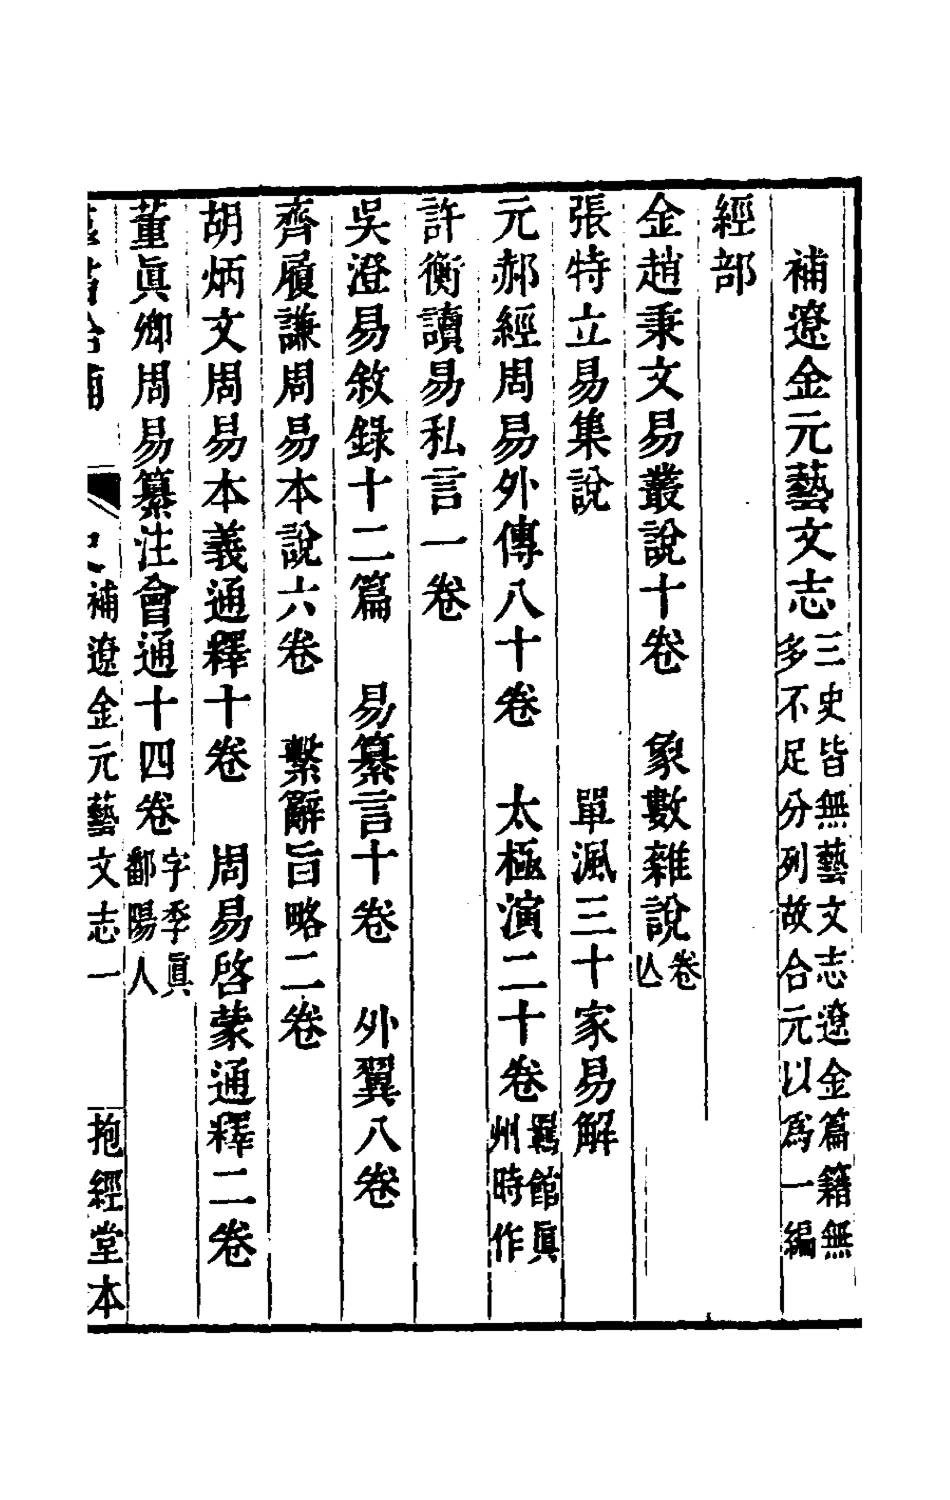 補遼金元藝文志三史皆無藝文志遼金篇籍無多不足分列故合元以爲一編
經部
金趙秉文易叢說十卷　象數雜說卷亾
張特立易集說　單渢三十家易解
元郝經周易外傳八十卷　太極演二十卷羈館眞州時作
許衡讀易私言一卷
吳澄易敘錄十二篇　易纂言十卷　外翼八卷
齊履謙周易本說六卷　繫辭旨略二卷
胡炳文周易本義通釋十卷　周易啓蒙通釋二卷
董眞卿周易纂注會通十四卷字季眞鄱陽人
補遼金元藝文志一　抱經堂本